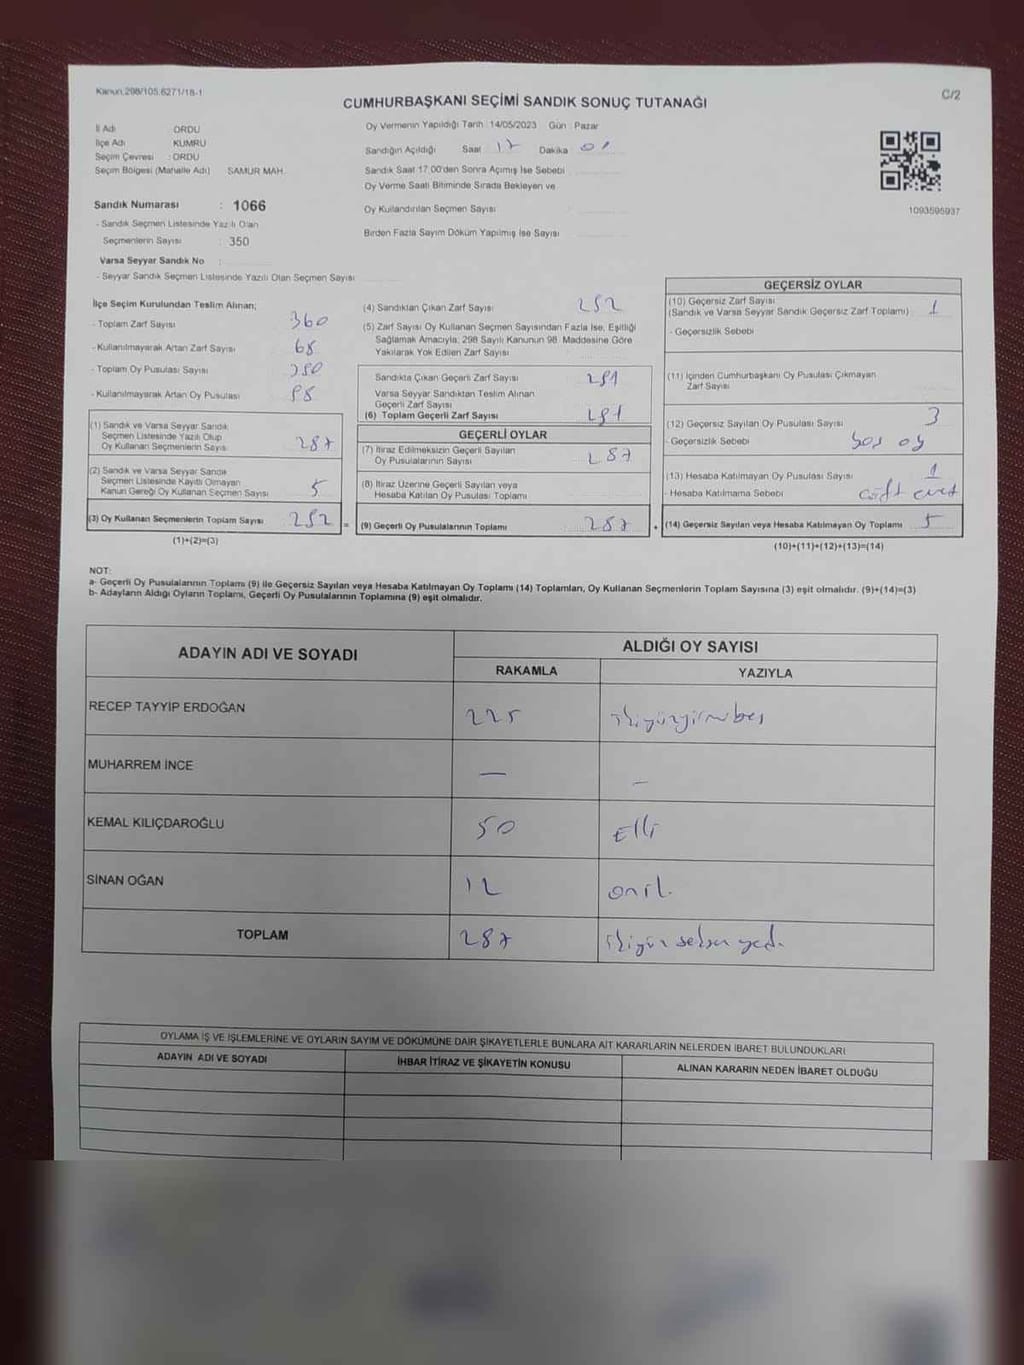 Kanun.298/105.6271/18-1
C/2
CUMHURBAŞKANI SEÇİMİ SANDIK SONUÇ TUTANAĞI
İl Adı ORDU
İlçe Adı KUMRU
Seçim Çevresi : ORDU
Seçim Bölgesi (Mahalle Adı) SAMUR MAH.
Oy Vermenin Yapıldığı Tarih : 14/05/2023 Gün : Pazar
Sandığın Açıldığı Saat 17 Dakika 01
Sandık Saat 17:00'den Sonra Açımış İse Sebebi
Oy Verme Saati Bitiminde Sırada Bekleyen ve
Oy Kullandırılan Seçmen Sayısı
Birden Fazla Sayım Döküm Yapılmış İse Sayısı
1093595937
Sandık Numarası : 1066
- Sandık Seçmen Listesinde Yazılı Olan
Seçmenlerin Sayısı : 350
Varsa Seyyar Sandık No :
- Seyyar Sandık Seçmen Listesinde Yazılı Olan Seçmen Sayısı
İlçe Seçim Kurulundan Teslim Alınan;
- Toplam Zarf Sayısı 360
- Kullanılmayarak Artan Zarf Sayısı 68
- Toplam Oy Pusulası Sayısı
- Kullanılmayarak Artan Oy Pusulası
(1) Sandık ve Varsa Seyyar Sandık
Seçmen Listesinde Yazılı Olup
Oy Kullanan Seçmenlerin Sayısı 287
(2) Sandık ve Varsa Seyyar Sandık
Seçmen Listesinde Kayıtlı Olmayan
Kanun Gereği Oy Kullanan Seçmen Sayısı 5
(3) Oy Kullanan Seçmenlerin Toplam Sayısı 292 =
(1)+(2)=(3)
(4) Sandıktan Çıkan Zarf Sayısı 292
(5) Zarf Sayısı Oy Kullanan Seçmen Sayısından Fazla İse, Eşitliği
Sağlamak Amacıyla; 298 Sayılı Kanunun 98. Maddesine Göre
Yakılarak Yok Edilen Zarf Sayısı
Sandıkta Çıkan Geçerli Zarf Sayısı 291
Varsa Seyyar Sandıktan Teslim Alınan
Geçerli Zarf Sayısı
(6) Toplam Geçerli Zarf Sayısı 291
GEÇERLİ OYLAR
(7) İtiraz Edilmeksizin Geçerli Sayılan
Oy Pusulalarının Sayısı 287
(8) İtiraz Üzerine Geçerli Sayılan veya
Hesaba Katılan Oy Pusulası Toplamı
(9) Geçerli Oy Pusulalarının Toplamı 287 +
GEÇERSİZ OYLAR
(10) Geçersiz Zarf Sayısı
(Sandık ve Varsa Seyyar Sandık Geçersiz Zarf Toplamı) 1
- Geçersizlik Sebebi
(11) İçinden Cumhurbaşkanı Oy Pusulası Çıkmayan
Zarf Sayısı
(12) Geçersiz Sayılan Oy Pusulası Sayısı 3
- Geçersizlik Sebebi boş oy
(13) Hesaba Katılmayan Oy Pusulası Sayısı 1
- Hesaba Katılmama Sebebi çift evet
(14) Geçersiz Sayılan veya Hesaba Katılmayan Oy Toplamı 5
(10)+(11)+(12)+(13)=(14)
NOT:
a- Geçerli Oy Pusulalarının Toplamı (9) ile Geçersiz Sayılan veya Hesaba Katılmayan Oy Toplamı (14) Toplamları, Oy Kullanan Seçmenlerin Toplam Sayısına (3) eşit olmalıdır. (9)+(14)=(3)
b- Adayların Aldığı Oyların Toplamı, Geçerli Oy Pusulalarının Toplamına (9) eşit olmalıdır.
ADAYIN ADI VE SOYADI
ALDIĞI OY SAYISI
RAKAMLA YAZIYLA
RECEP TAYYİP ERDOĞAN 225 ikiyüzyirmibeş
MUHARREM İNCE — –
KEMAL KILIÇDAROĞLU 50 Elli
SİNAN OĞAN 12 oniki
TOPLAM 287 ikiyüz seksen yedi
OYLAMA İŞ VE İŞLEMLERİNE VE OYLARIN SAYIM VE DÖKÜMÜNE DAİR ŞİKAYETLERLE BUNLARA AİT KARARLARIN NELERDEN İBARET BULUNDUKLARI
ADAYIN ADI VE SOYADI İHBAR İTİRAZ VE ŞİKAYETİN KONUSU ALINAN KARARIN NEDEN İBARET OLDUĞU